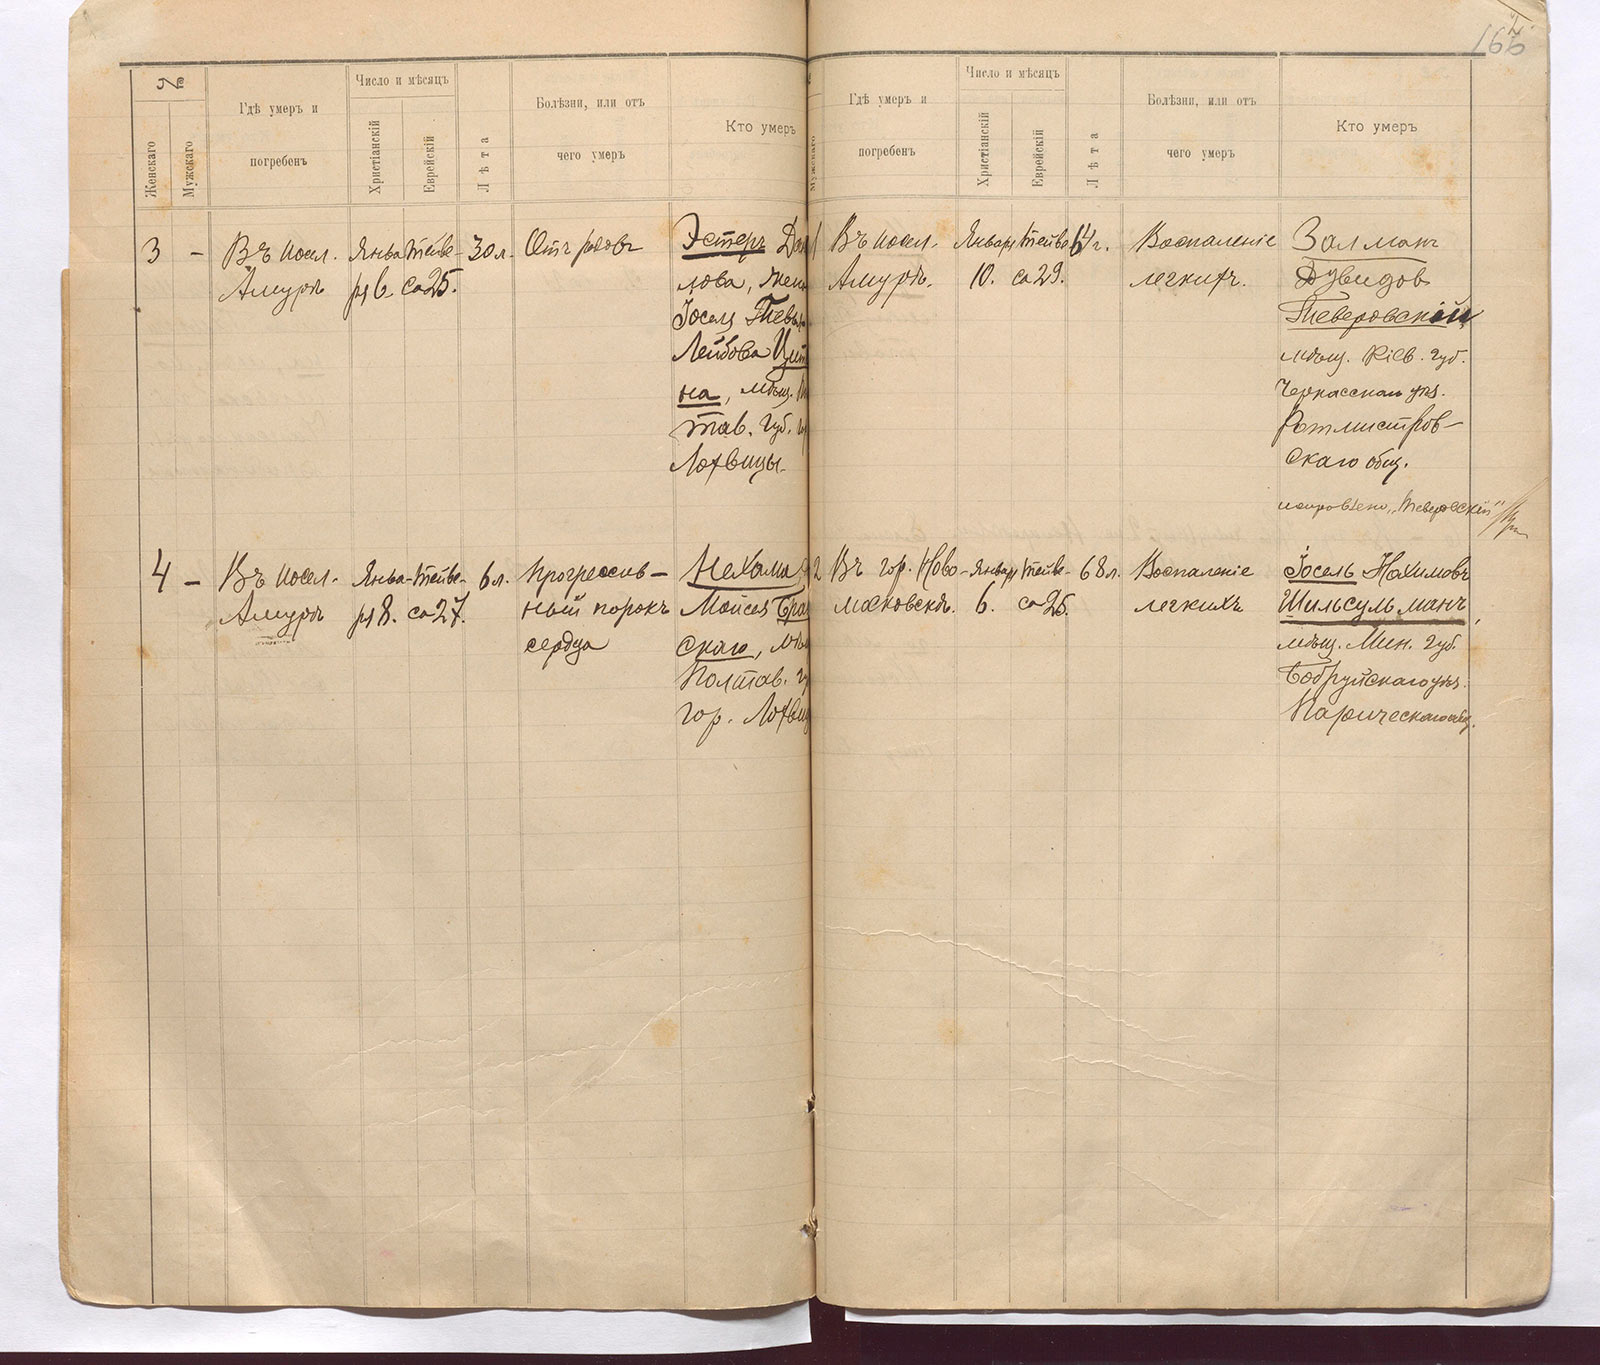 2.
166
№
Женскаго
Мужскаго
Гдѣ умеръ и
погребенъ
Число и мѣсяцъ
Христіанскій
Еврейскій
Лѣта
Болѣзни, или отъ
чего умеръ
Кто умеръ
3
-
Въ посел.
Амурѣ
Янва-
ря 6.
Тейве-
са 25.
30 л.
Отъ родовъ
Эстеръ
лова, жена
Іоселя
Лейбова Цит
на, мѣщ.
тав. губ.
Лохвицы.
4
-
Въ посел.
Амурѣ
Янва-
ря 8.
Тейве-
са 27.
6 л.
Прогрессив-
ный порокъ
сердца
Нехама
Моисея Бра
скаго,
Полтав.
гор. Лохвиц
Мужскаго
Гдѣ умеръ и
погребенъ
Число и мѣсяцъ
Христіанскій
Еврейскій
Лѣта
Болѣзни, или отъ
чего умеръ
Кто умеръ
1
Въ посел.
Амурѣ.
Январь
10.
Тейве
са 29.
64 г.
Воспаленіе
легкихъ.
Залманъ
Дувидов
Тверовскій
мѣщ. Кіев. губ.
Черкасскаго уѣз.
Ротмистров-
скаго общ.
исправлено „Тверовскій"
2
Въ гор. Ново-
московскѣ.
Январь
6.
Тейве-
са 25.
68 л.
Воспаленіе
легкихъ
Іосель Нахимовъ
Шильсульманъ,
мѣщ. Мин. губ.
Бобруйскаго уѣз.
Паричскаго общ.